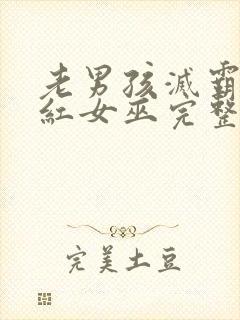 老男孩滅霸
紅女巫完整
完美土豆